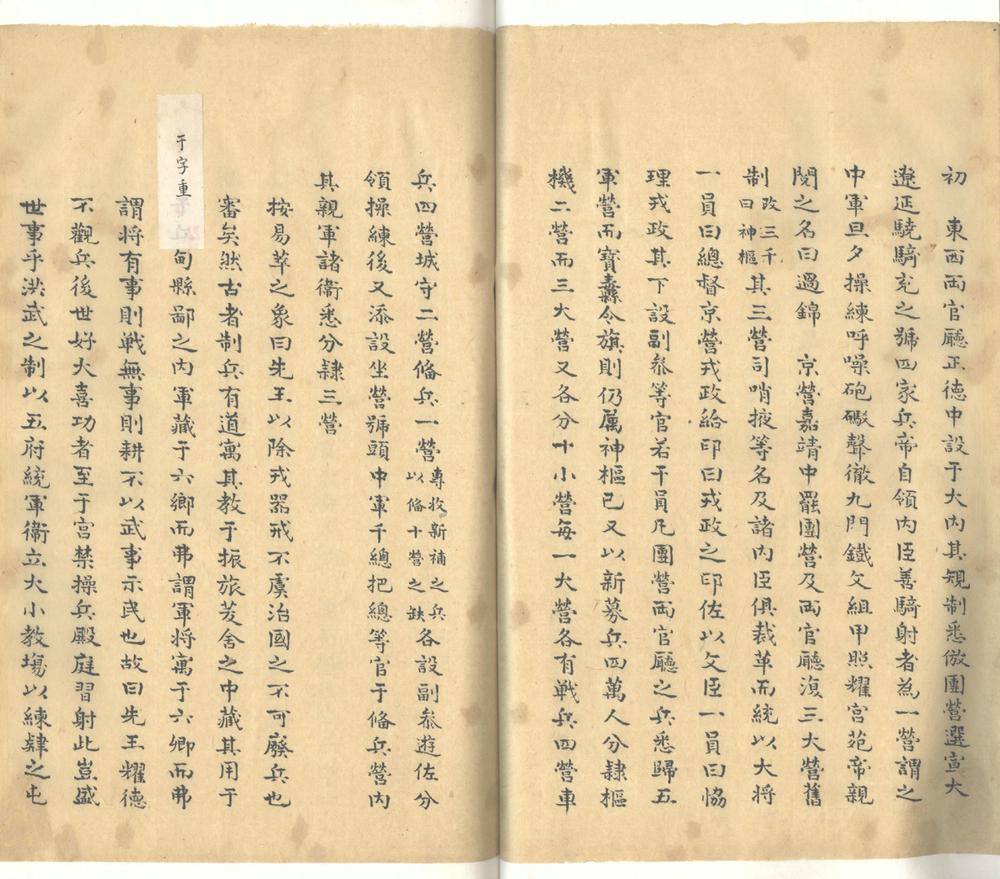 初　東西兩官廳正德中設于大內其規制悉倣團營選宣大
遼延驍騎充之號四家兵帝自領內臣善騎射者為一營謂之
中軍旦夕操練呼噪砲礮聲徹九門鐵文組甲照耀宮苑帝親
閱之名曰過錦　京營嘉靖中罷團營及兩官廳復三大營舊
制改三千曰神樞其三營司哨掖等名及諸內臣俱裁革而統以大將
一員曰總督京營戎政給印曰戎政之印佐以文臣一員曰恊
理戎政其下設副叅等官若干員凡團營兩官廳之兵悉歸五
軍營而寶纛令旗則仍属神樞已又以新募兵四萬人分隸樞
機二營而三大營又各分十小營每一大營各有戰兵四營車
兵四營城守二營俻兵一營專收新補之兵以俻十營之缺各設副叅遊佐分
領操練後又添設坐營號頭中軍千總把總等官于俻兵營內
其親軍諸衛悉分隸三營
按易萃之象曰先王以除戎器戒不虞治國之不可廢兵也
審矣然古者制兵有道寓其教于振旅茇舍之中藏其用于
于字重
甸縣鄙之內軍藏于六鄉而弗謂軍将寓于六卿而弗
謂将有事則戰無事則耕不以武事示民也故曰先王耀德
不觀兵後世好大喜功者至于宮禁操兵殿庭習射此豈盛
世事乎洪武之制以五府統軍衞立大小教塲以練肄之屯